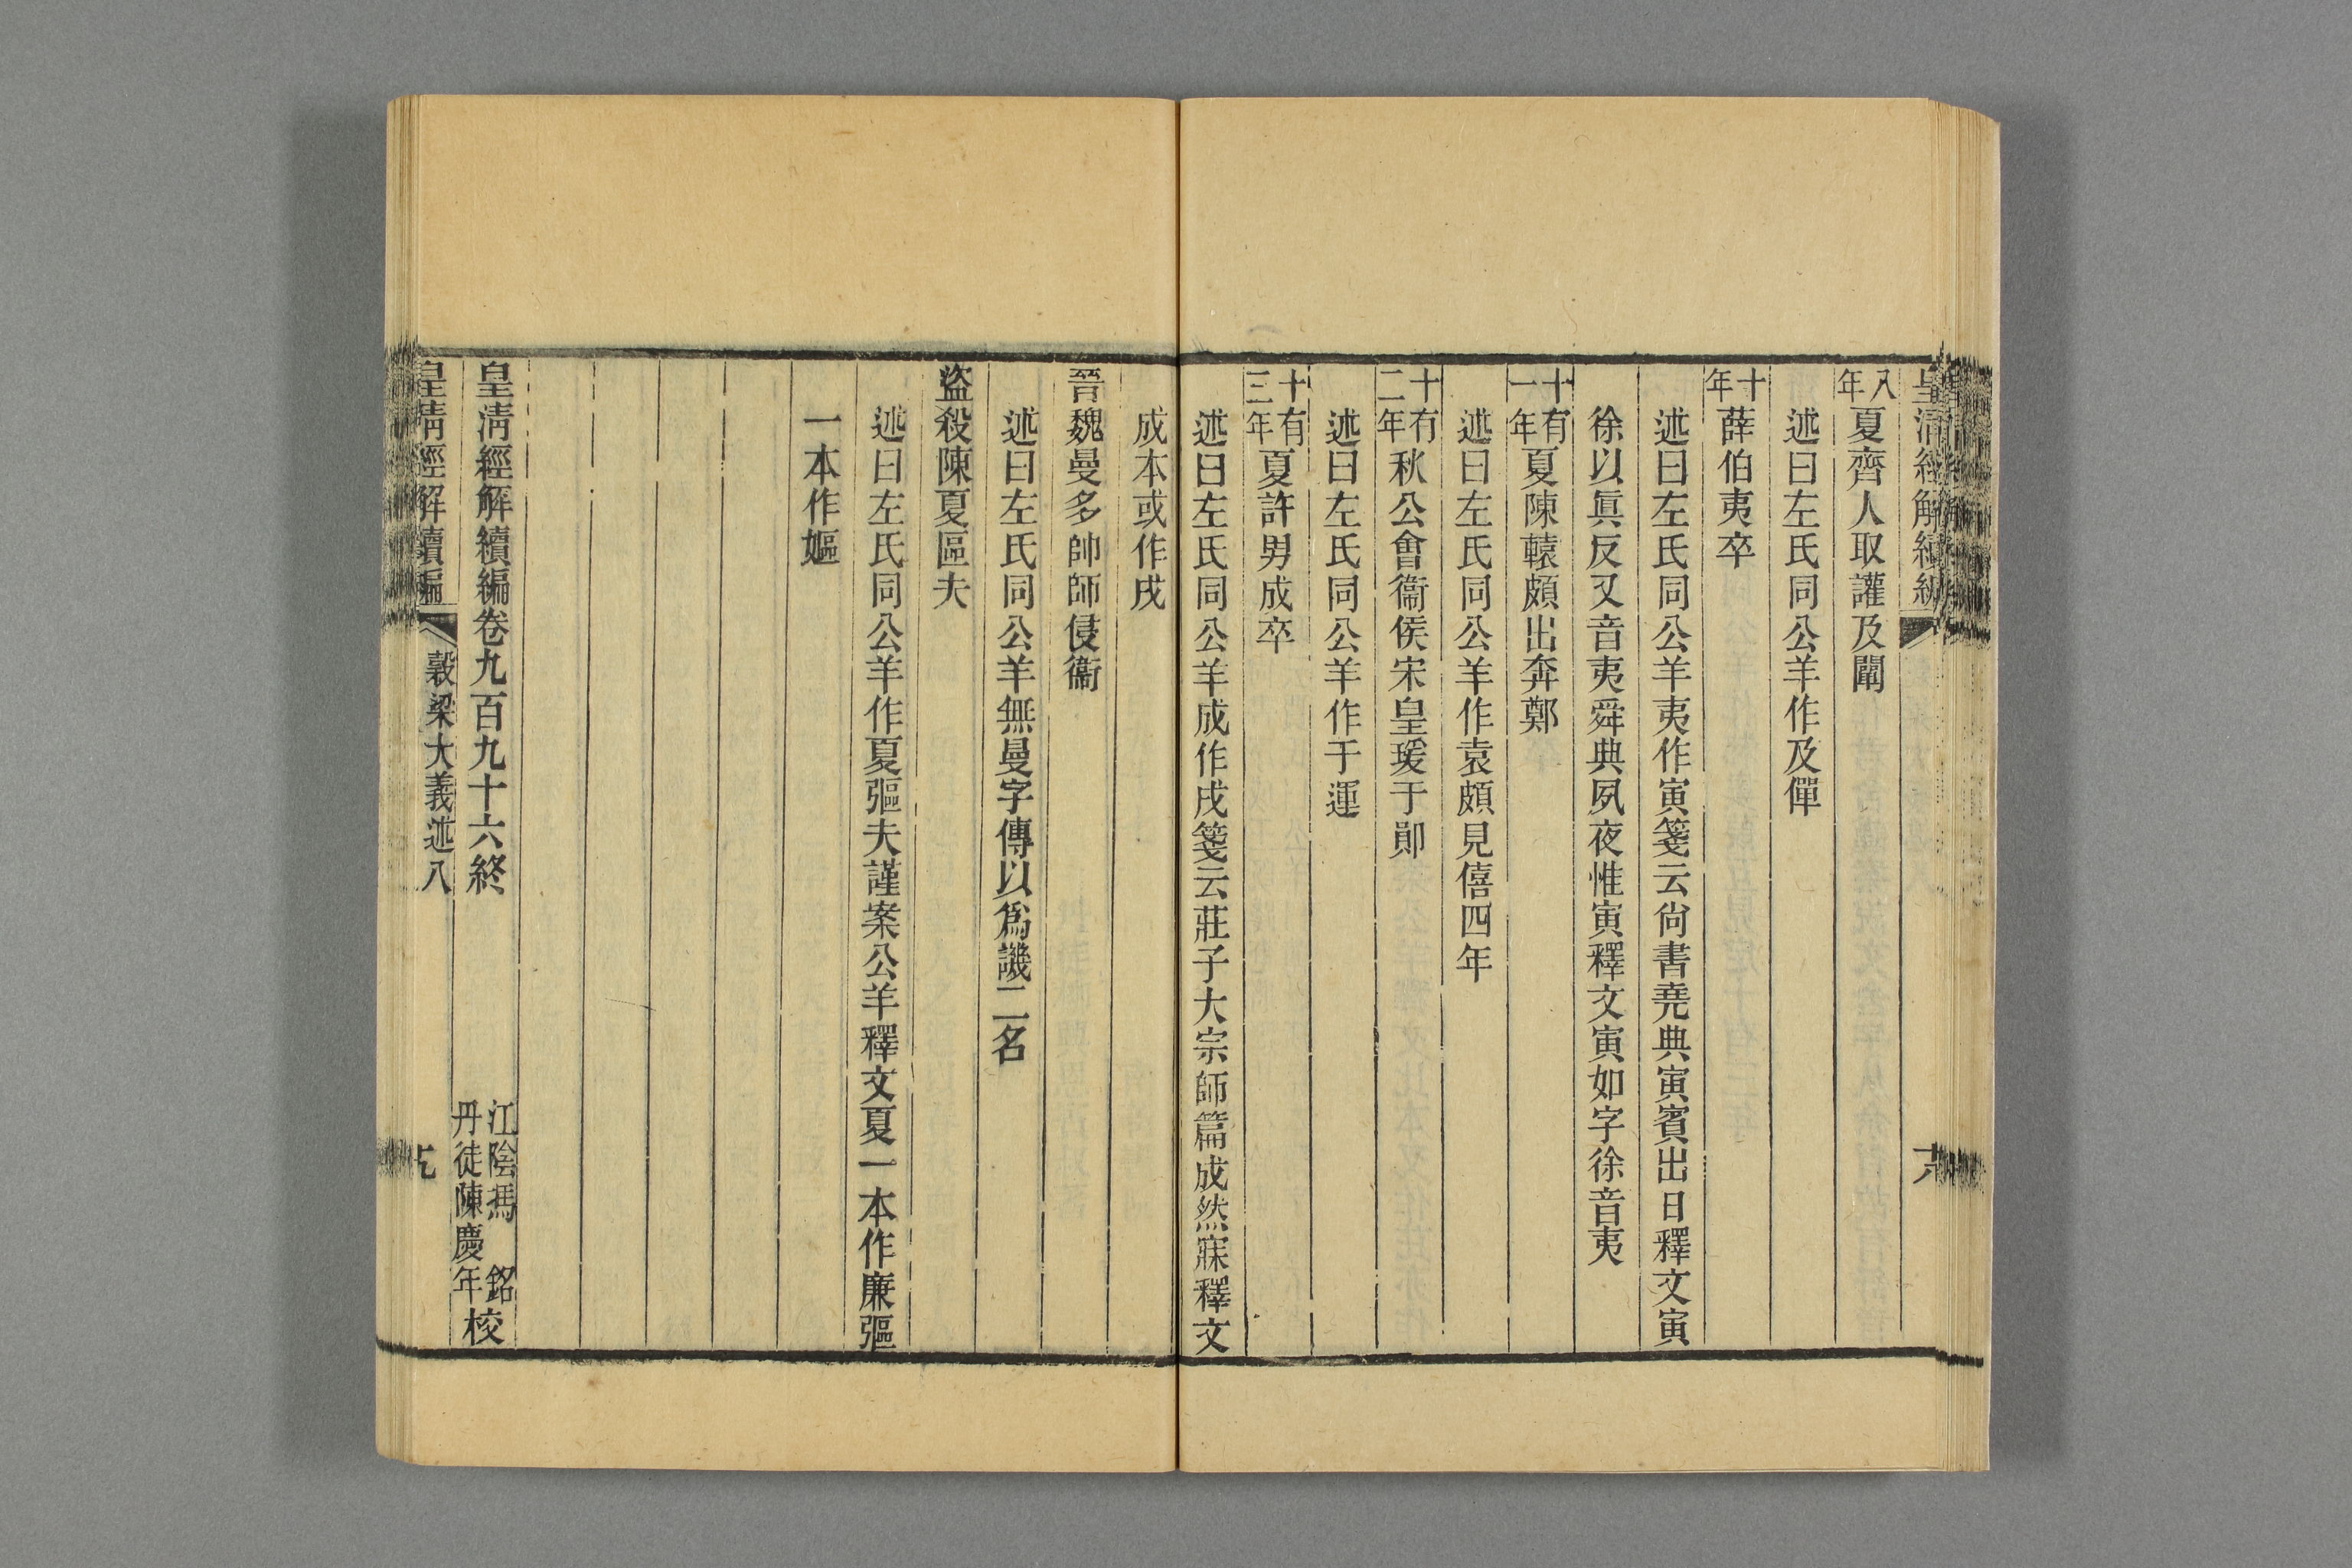 皇清經解續編
八年夏齊人取讙及闡
述曰左氏同公羊作及僤
十年薛伯夷卒
述曰左氏同公羊夷作寅箋云尙書堯典寅賓出日釋文寅
徐以眞反又音夷舜典夙夜惟寅釋文寅如字徐音夷
十有一年夏陳轅頗出奔鄭
述曰左氏同公羊作袁頗見僖四年
十有二年秋公會衞侯宋皇瑗于鄖
述曰左氏同公羊作于運
十有三年夏許男成卒
述曰左氏同公羊成作戌箋云莊子大宗師篇成然寐釋文
成本或作戌
晉魏曼多帥師侵衞
述曰左氏同公羊無曼字傳以爲譏二名
盜殺陳夏區夫
述曰左氏同公羊作夏彄夫謹案公羊釋文夏一本作廉彄
一本作嫗
皇清經解續編卷九百九十六終
江陰馮 銘
丹徒陳慶年校
皇清經解續編
穀梁大義述八